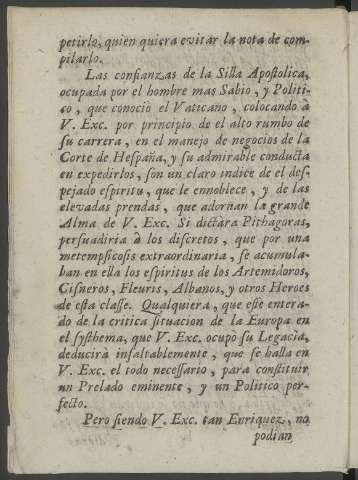 petirlo, quien quiera evitar la nota de com-
pilarlo.
Las confianzas de la Silla Apostolica,
ocupada por el hombre mas Sabio, y Politi-
co, que conociò el Vaticano, colocando à
V. Exc. por principio de el alto rumbo de
su carrera, en el manejo de negocios de la
Corte de Hespaña, y su admirable conducta
en expedirlos, son un claro indice de el des-
pejado espiritu, que le ennoblece, y de las
elevadas prendas, que adornan la grande
Alma de V. Exc. Si dictàra Pithagoras,
persuadiria à los discretos, que por una
metempsicosis extraordinaria, se acumula-
ban en ella los espiritus de los Artemidoros,
Cisneros, Fleuris, Albanos, y otros Heroes
de esta classe. Qualquiera, que estè entera-
do de la critica situacion de la Europa en
el systhema, que V. Exc. ocupò su Legacìa,
deducirà infaltablemente, que se halla en
V. Exc. el todo necessario, para constituir
un Prelado eminente, y un Politico per-
fecto.
Pero siendo V. Exc. tan Enriquez, no
podian